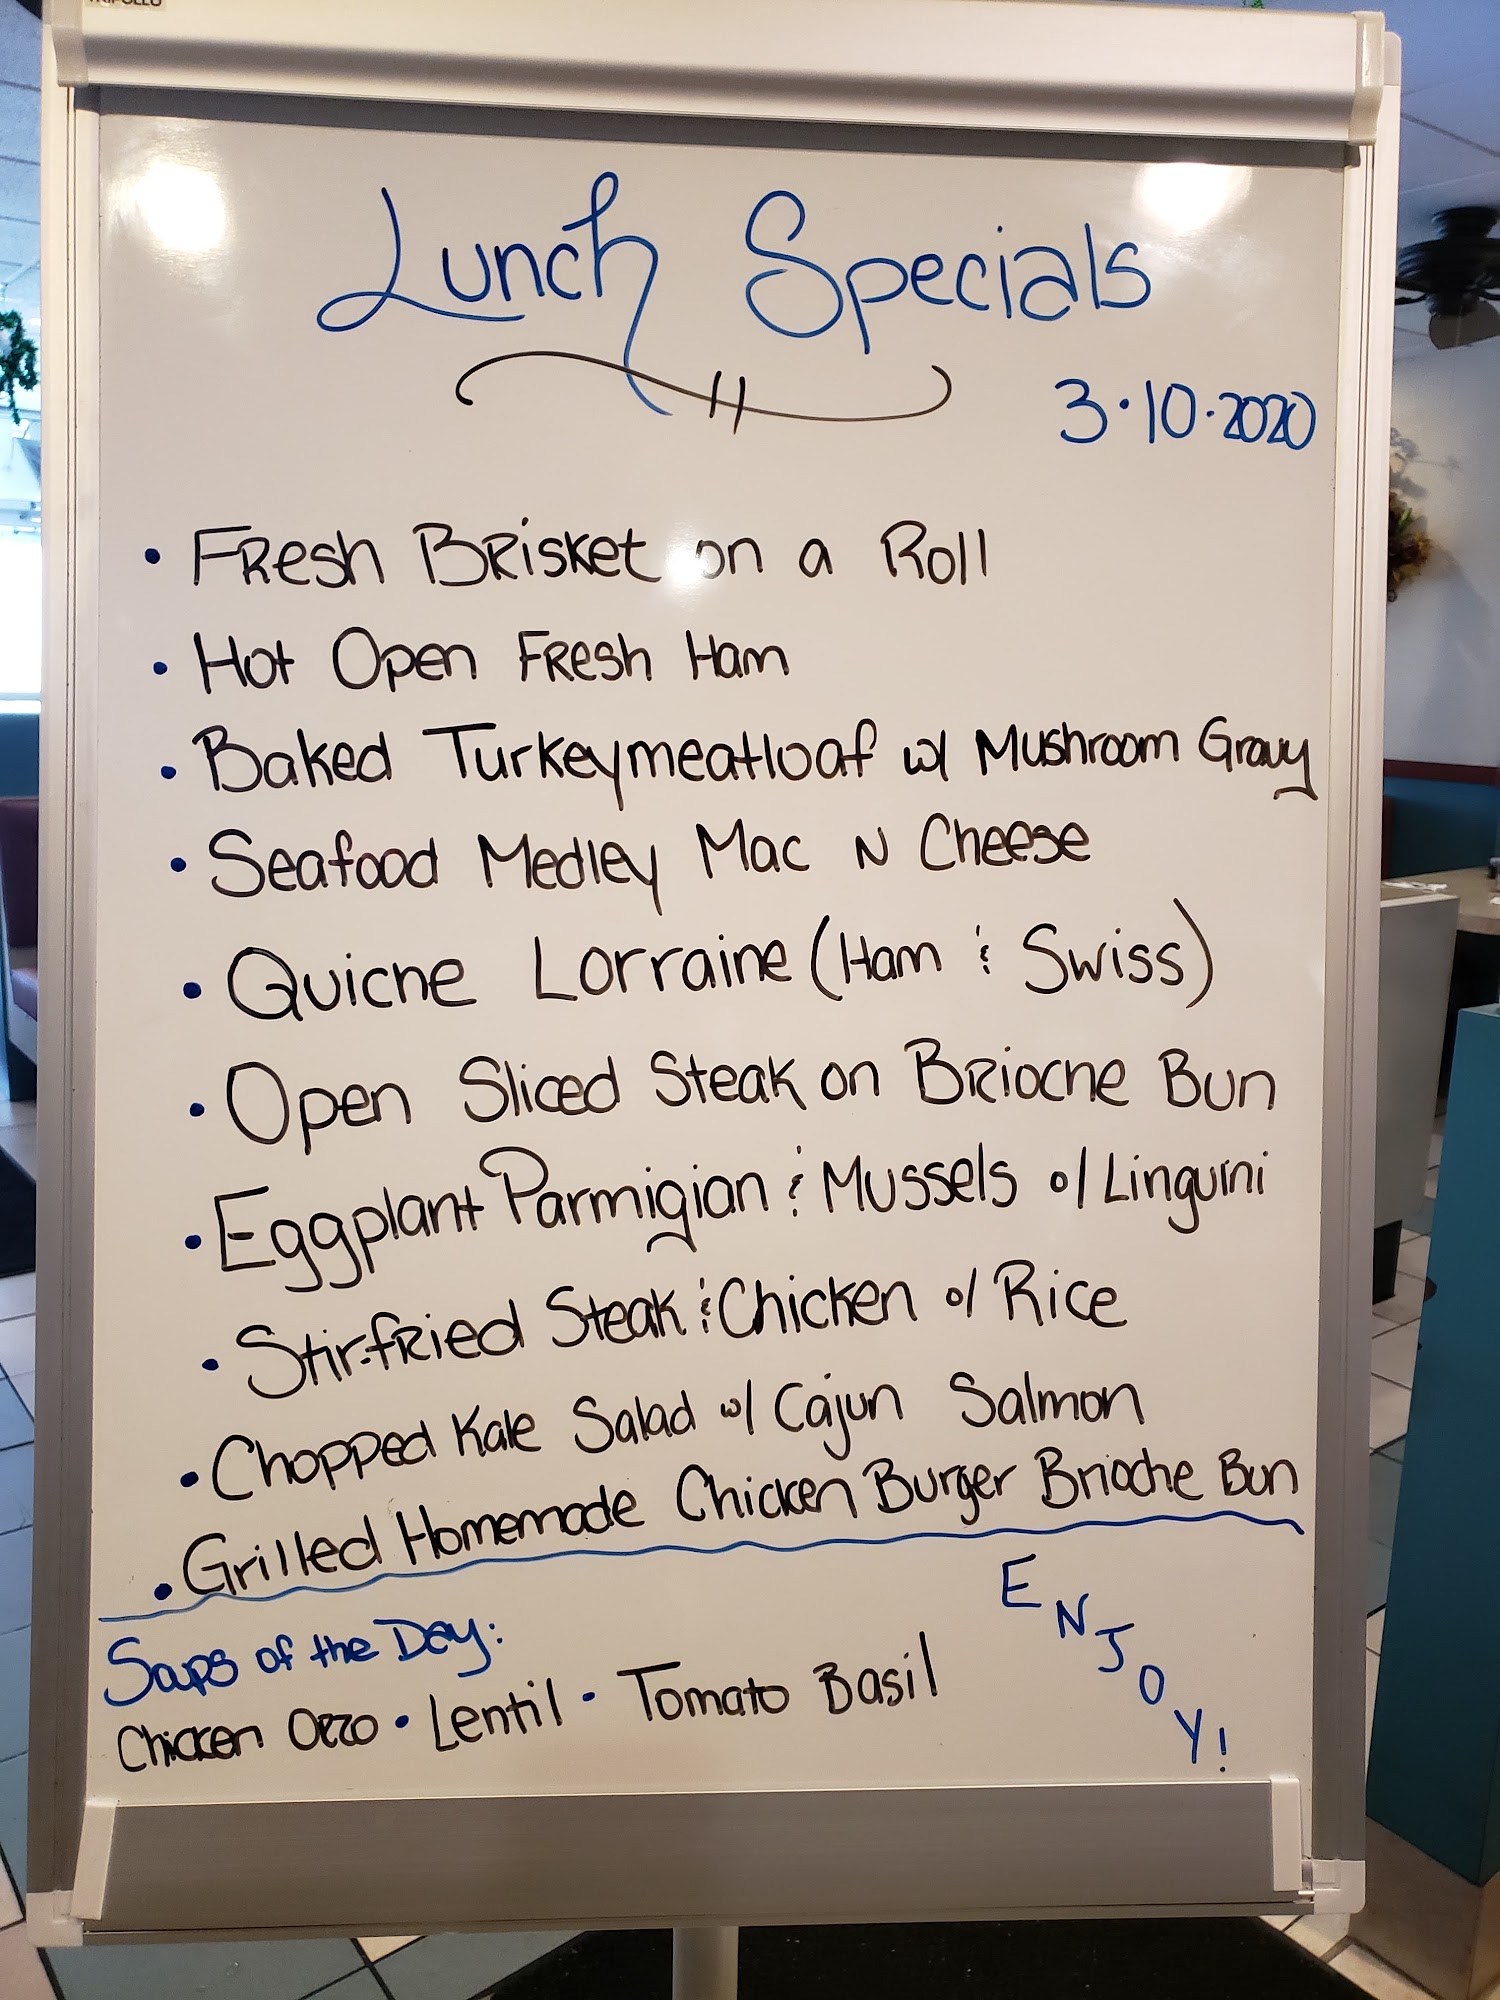 Lunch Specials
3·10·2020
• Fresh Brisket on a Roll
• Hot Open Fresh Ham
• Baked Turkeymeatloaf w/ Mushroom Gravy
• Seafood Medley Mac N Cheese
• Quiche Lorraine (Ham & Swiss)
• Open Sliced Steak on Brioche Bun
• Eggplant Parmigian & Mussels o/ Linguini
• Stir-fried Steak & Chicken o/ Rice
• Chopped Kale Salad w/ Cajun Salmon
• Grilled Homemade Chicken Burger Brioche Bun
Soups of the Day:
Chicken Orzo • Lentil • Tomato Basil
ENJOY!